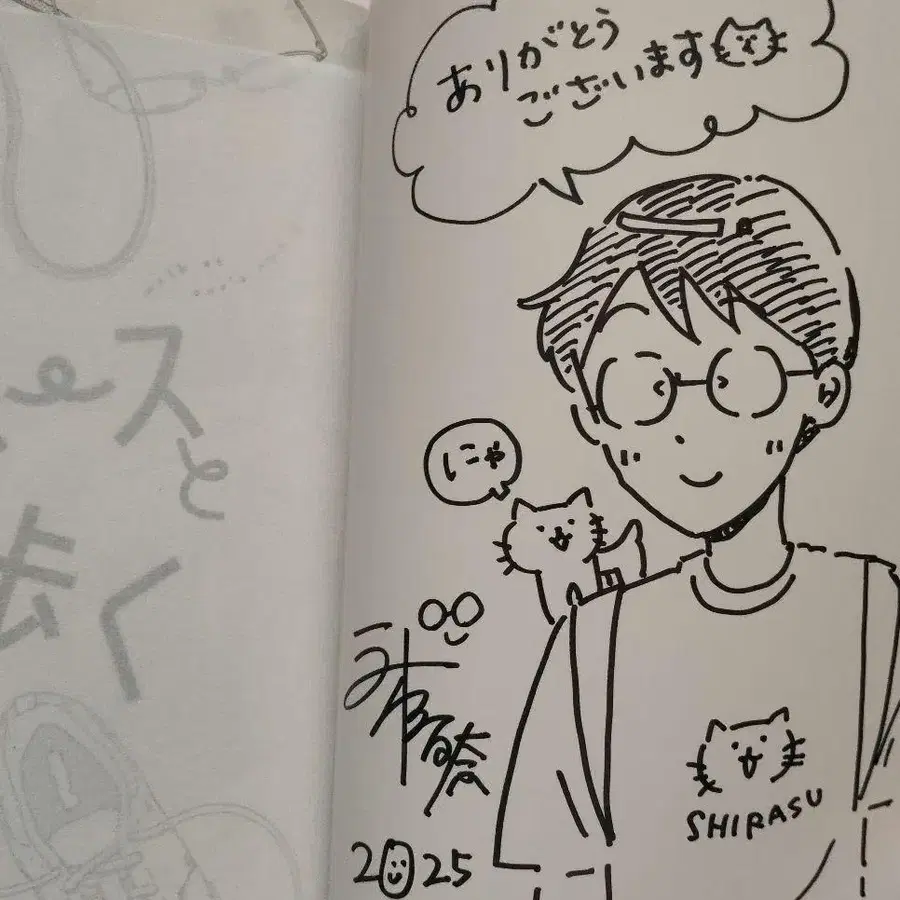 ありがとう
ございます
にゃ
SHIRASU
2025
スと
歩く